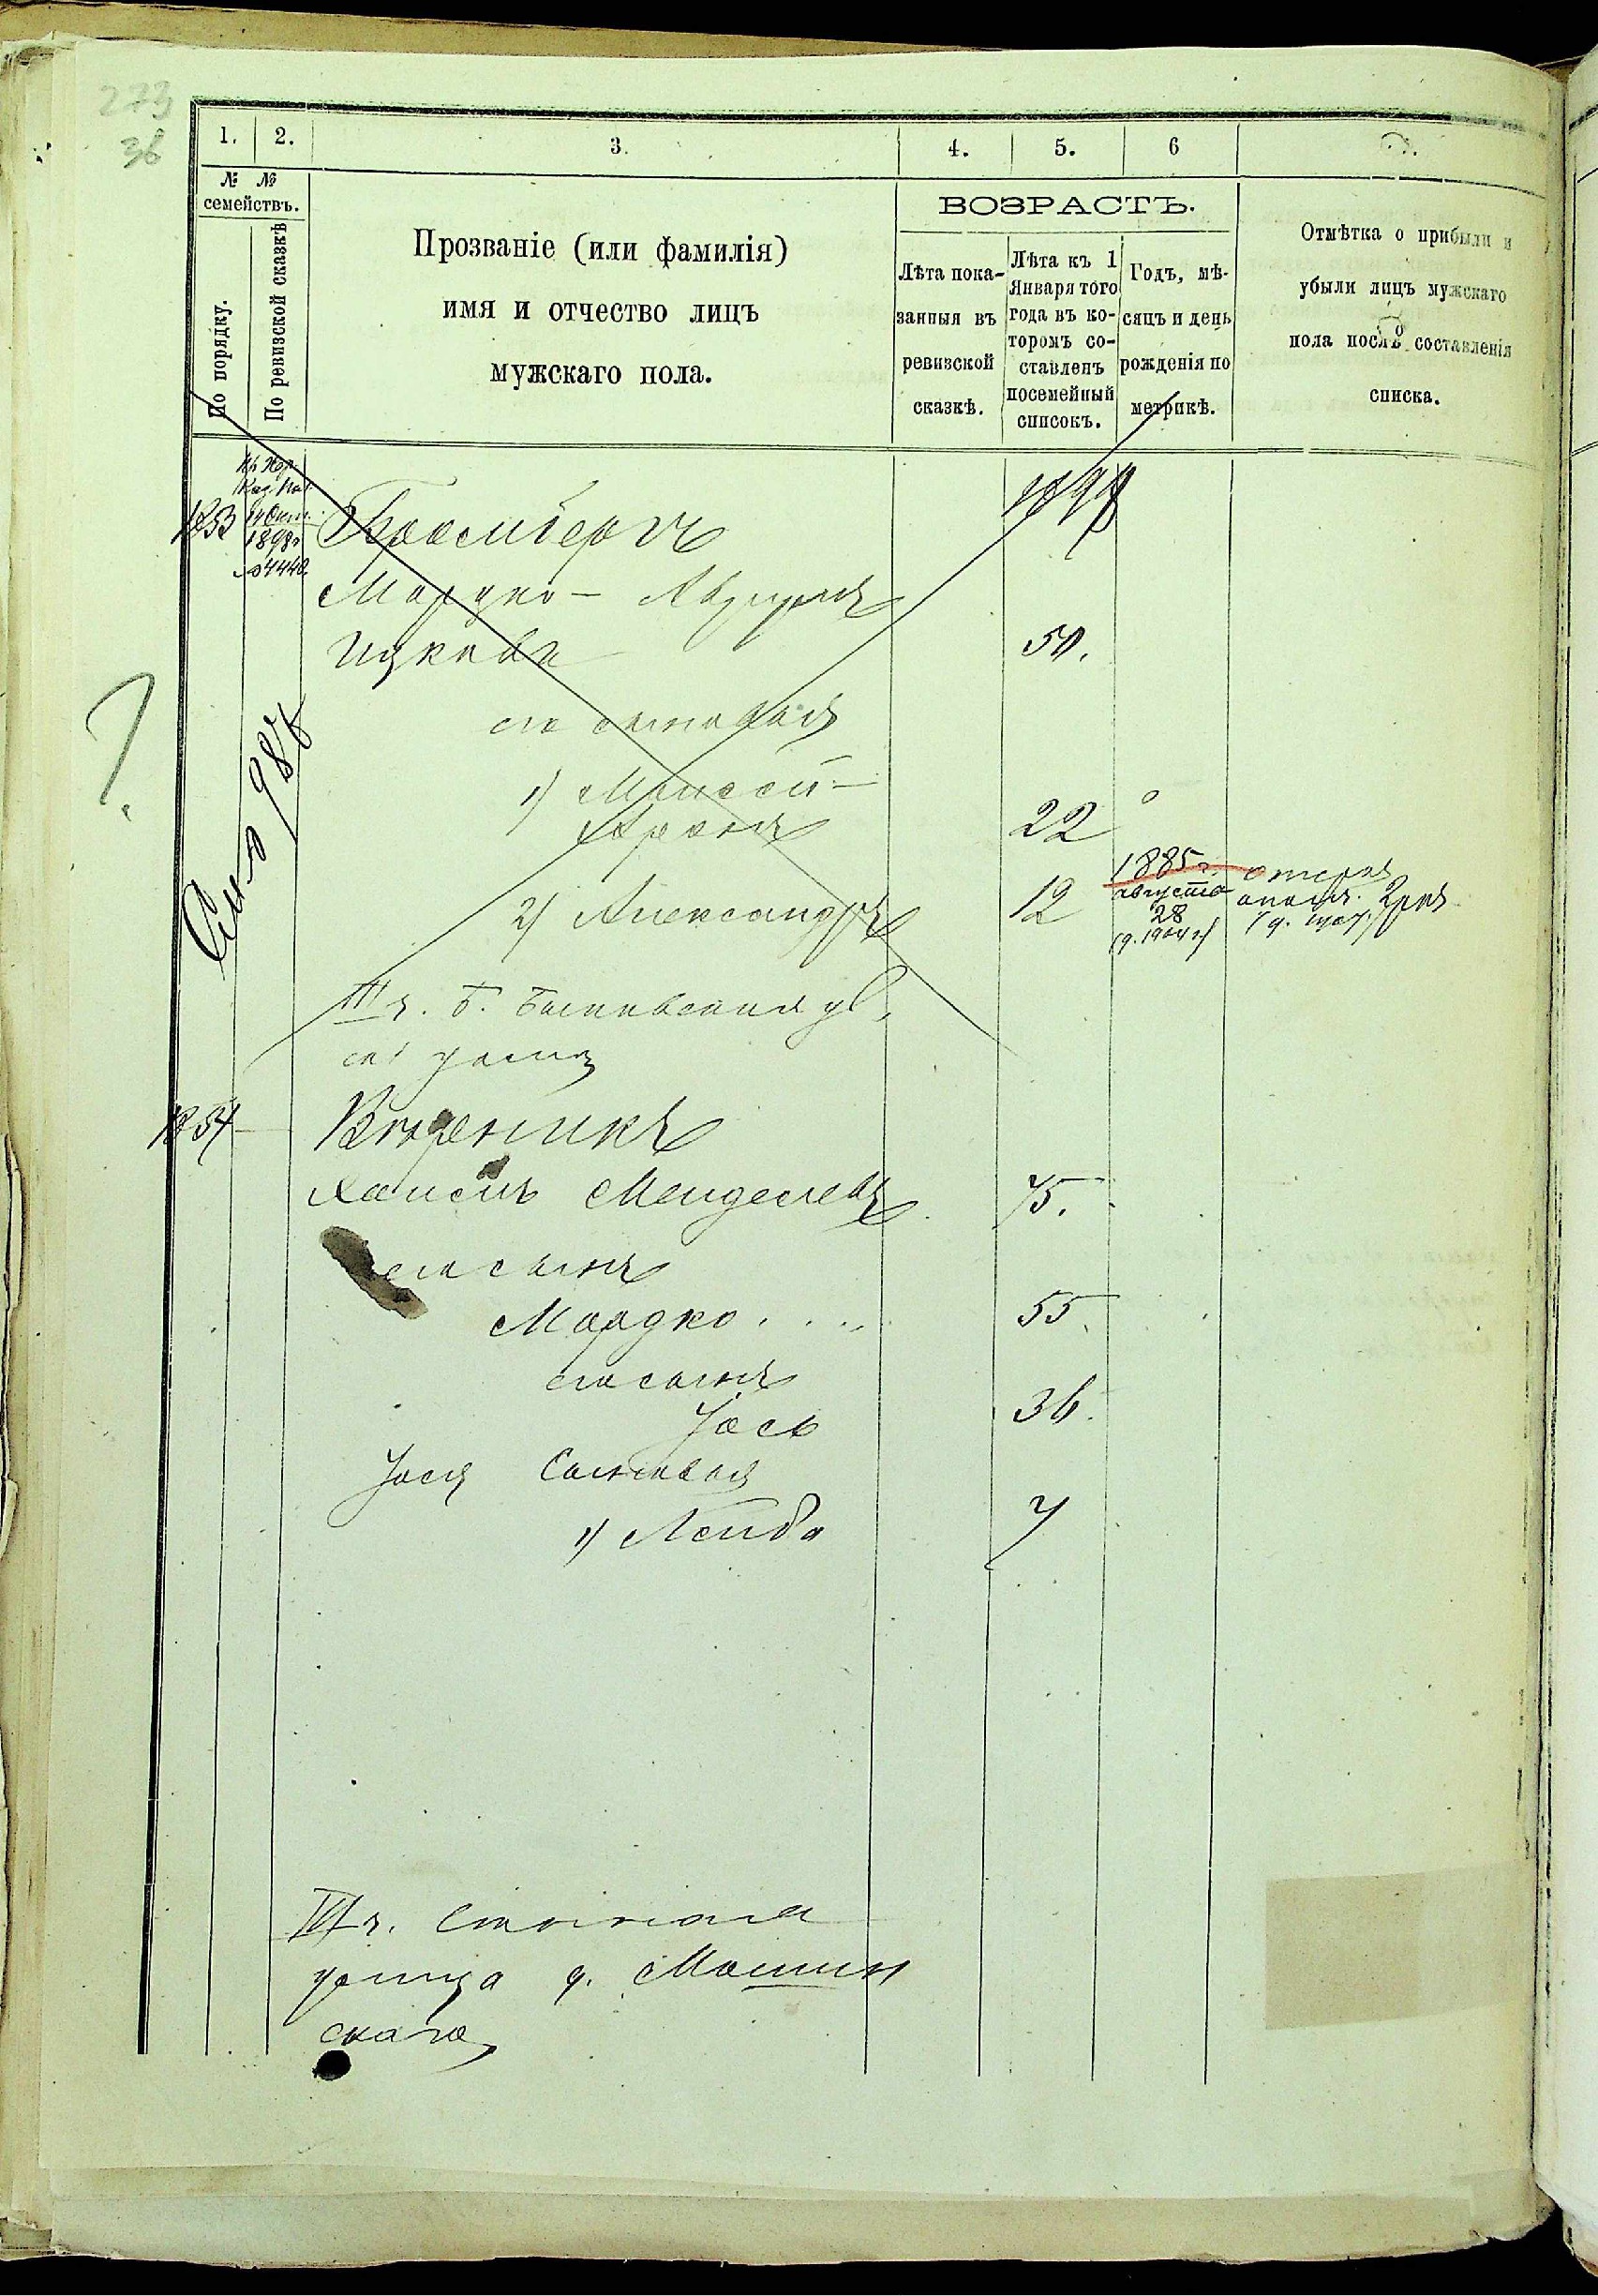 273
36
1. 2. 3. 4. 5. 6
№ № семействъ.
По порядку.
По ревизской сказкѣ
Прозваніе (или фамилія)
имя и отчество лицъ
мужскаго пола.
ВОЗРАСТЪ.
Лѣта пока-
занныя въ
ревизской
сказкѣ.
Лѣта къ 1
Января того
года въ ко-
торомъ со-
ставленъ
посемейный
списокъ.
Годъ, мѣ-
сяцъ и день
рожденія по
метрикѣ.
Отмѣтка о прибыли и
убыли лицъ мужскаго
пола послѣ составленія
списка.
Каз. Пал.
1253
1898 г.
№ 4440
189
Мордко-
Ицковъ 50.
?
его сыновья
1) Моисей-
Аронъ 22
2) Александръ 12
1885 г.
августа
28
(д. 1904 г.)
III ч. Б. Васильковская ул.
1254
Вторникъ
Хаимъ Менделевъ 75.
его сынъ
Мордко 55.
его сынъ
Іось 36.
Іося Сыновья
1) Лейба 7
улица д. Машин
скаго